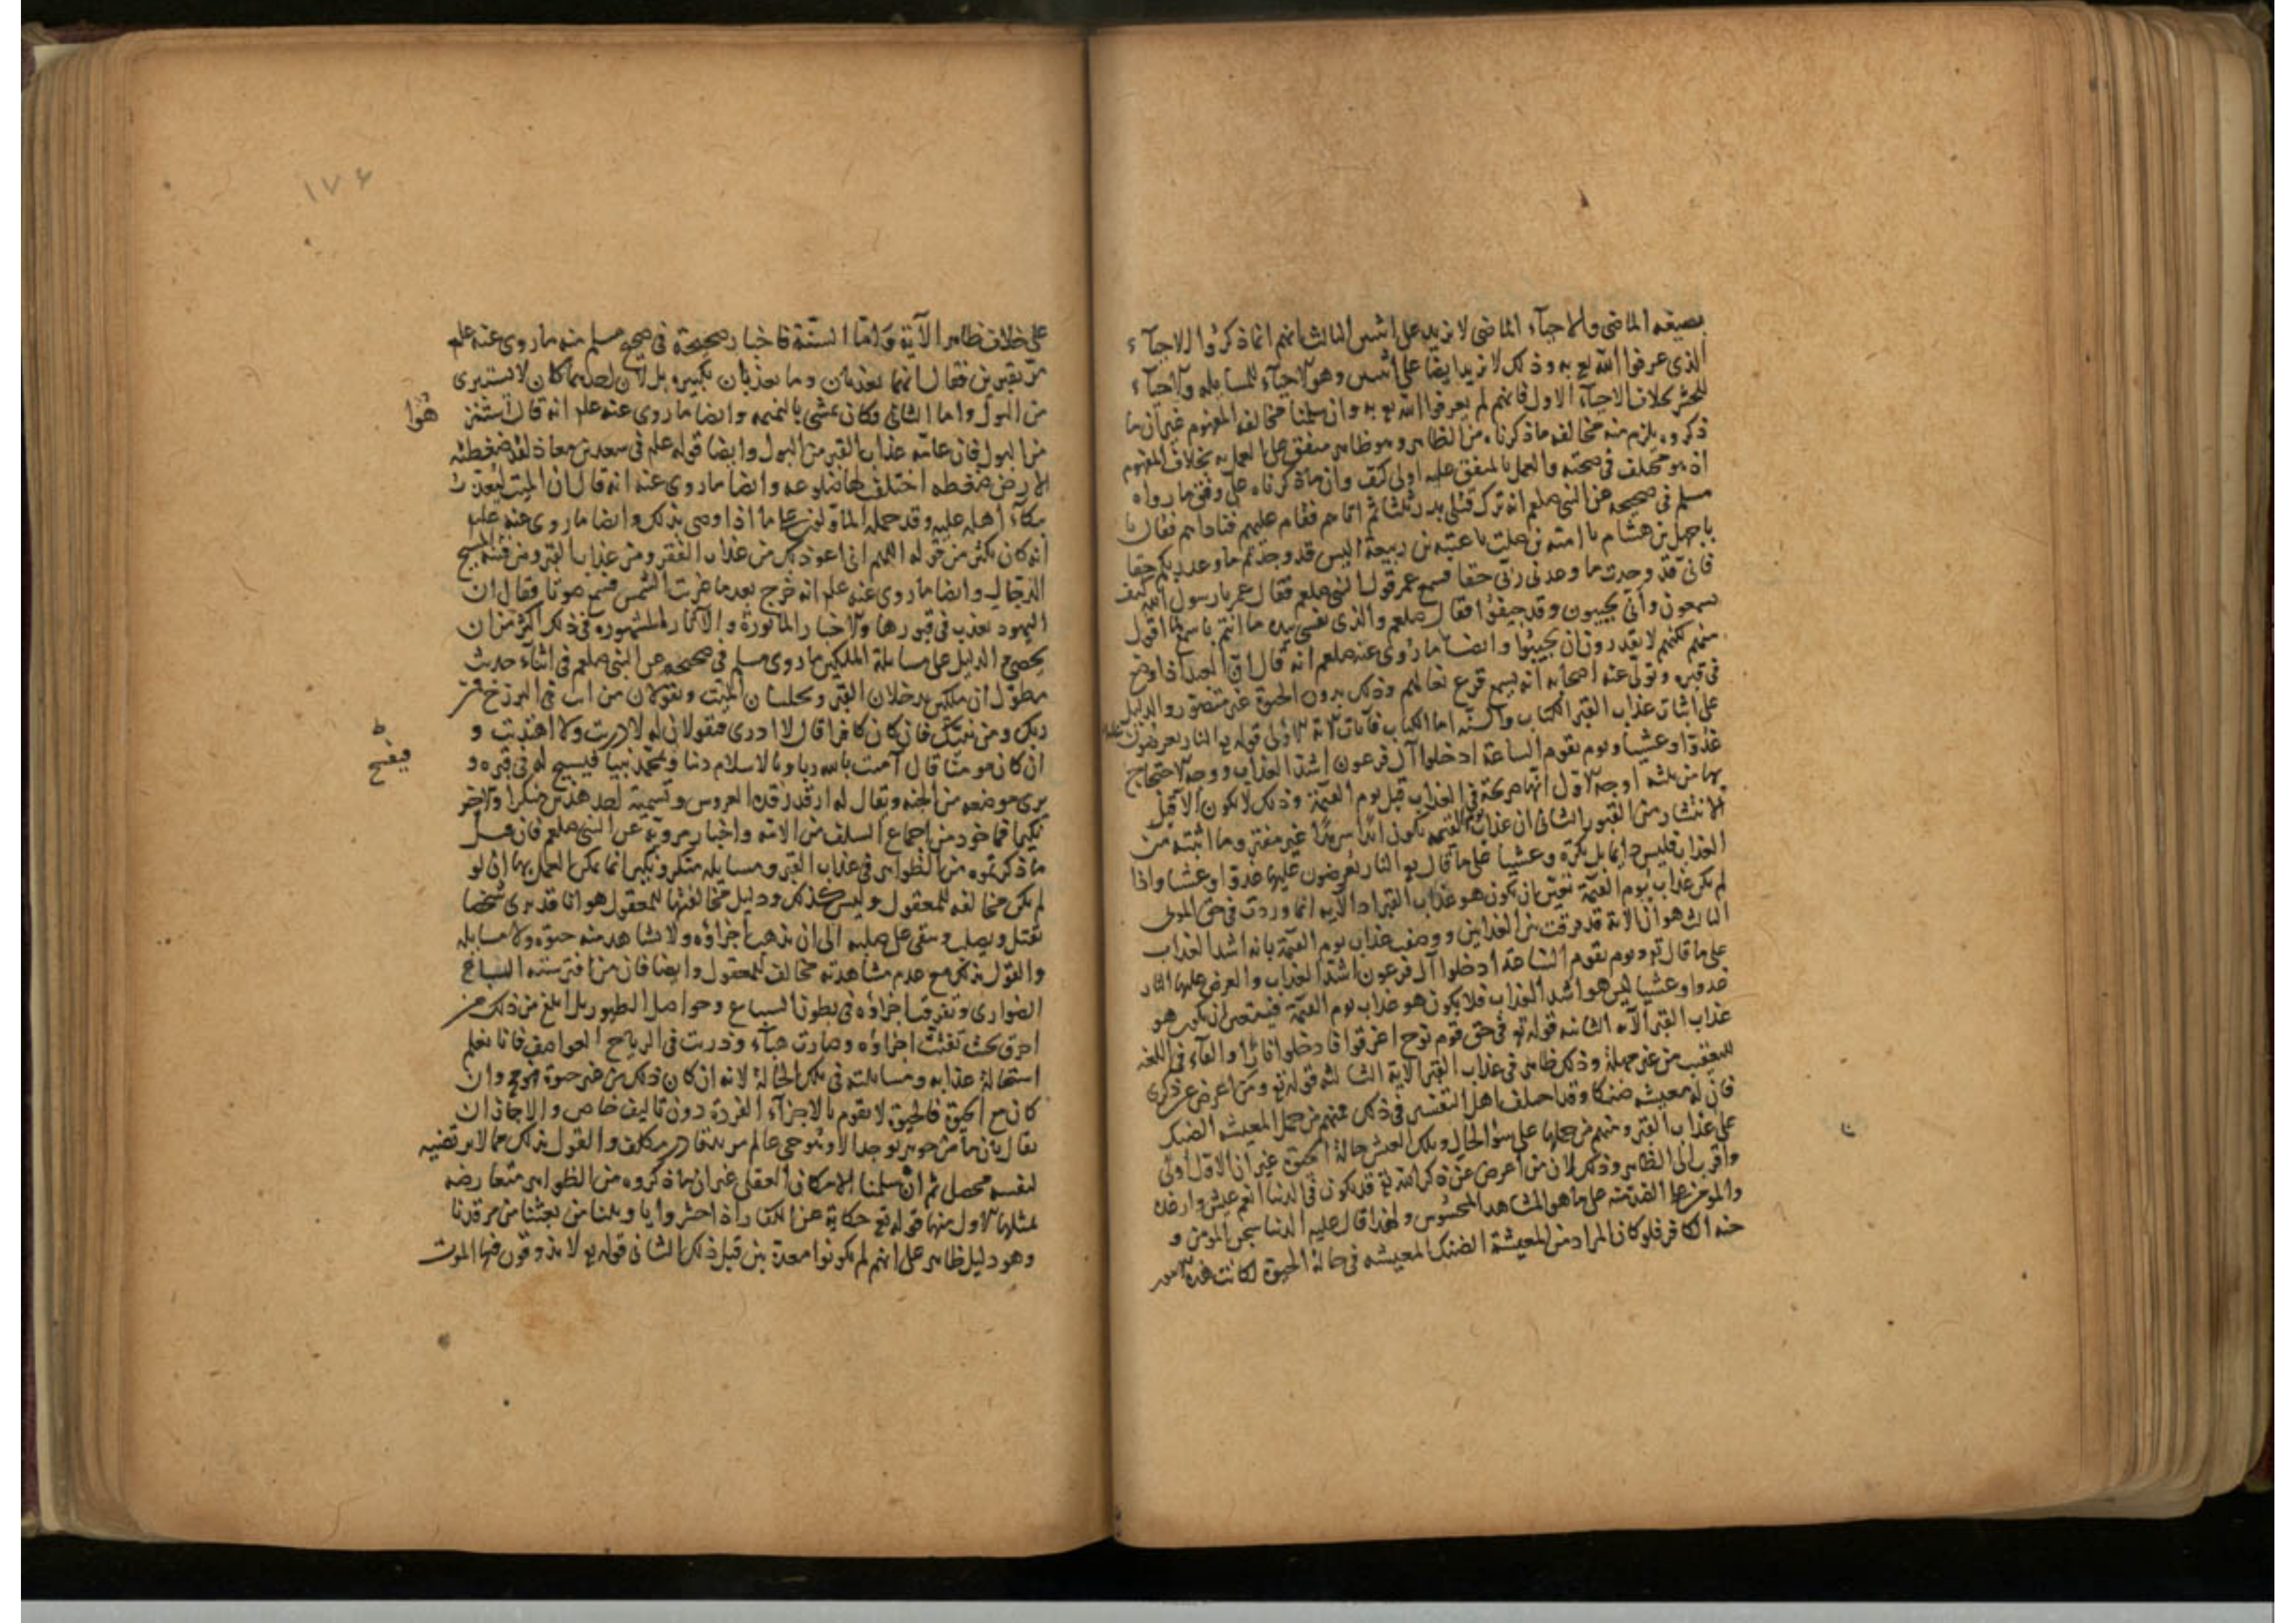 بصيغه الماضى والاحيآء الماضى لا يزيد على اثنين الثالث انهم انما ذكروا الاحيآء
الذى عرفوا الله تع به وذلك لا يزيد ايضا على اثنين وهو الاحيآء للمسايله والاحيآء
للحشر بخلاف الاحيآء الاول فانهم لم يعرفوا الله تع به وان سلمنا مخالفه المفهوم غير ان ما
ذكروه يلزم منه مخالفه ما ذكرناه من الظاهر وهو ظاهر متفق على العمل به بخلاف المفهوم
اذ هو مختلف فى صحته والعمل بالمتفق عليه اولى كيف وان ما ذكرناه على وفق ما رواه
مسلم فى صحيحه عن النبى صلعم انه ترك قتلى بدر ثلثا ثم اتاهم فقام عليهم فناداهم فقال يا
باجهل بن هشام يا اميه بن خلف يا عتبه بن ربيعة اليس قد وجدتم ما وعد ربكم حقا
فانى قد وجدت ما وعدنى ربى حقا فسمع عمر قول النبى صلعم فقال عمر يا رسول الله كيف
يسمعون وأنى يجيبون وقد جيفوا فقال صلعم والذى نفسى بيده ما انتم باسمع لما اقول
منهم لكنهم لا يقدرون ان يجيبوا وايضا ما روى عنه صلعم انه قال ان العبد اذا وضع
فى قبره وتولى عنه اصحابه انه يسمع قرع نعالهم وذلك بدون الحيوة غير متصور والدليل
على اثبات عذاب القبر الكتاب والسنه اما الكتاب فآيات الاية الاولى قوله تع النار يعرضون عليها
غدوا وعشيا ويوم تقوم الساعة ادخلوا آل فرعون اشد العذاب ووجه الاحتجاج
بها من ثلثه اوجه الاول انها صريحة فى العذاب قبل يوم القيمة وذلك لا يكون الا قبل
الانتشار من القبور الثانى ان عذاب يوم القيمه يكون ابدا سرمدا غير مفتر وما اثبته من
العذاب فليس دايما بل بكرة وعشيا على ما قال تع النار يعرضون عليها غدوا وعشيا واذا
لم يكن عذاب يوم القيمة تعين ان يكون هو عذاب القبر اذ الآيه انما وردت فى حق الموتى
الثالث هو ان الاية قد فرقت بين العذابين ووصف عذاب يوم القيمة بانه اشد العذاب
على ما قال تع ويوم تقوم الساعة ادخلوا آل فرعون اشد العذاب والعرض عليها النار
غدوا وعشيا ليس هو اشد العذاب فلا يكون هو عذاب يوم القيمة فيتعين ان يكون هو
عذاب القبر الآيه الثانيه قوله تع فى حق قوم نوح اغرقوا فادخلوا نارا والفآء فى اللغه
للتعقيب من غير مهلة وذلك ظاهر فى عذاب القبر الاية الثالثه قوله تع ومن اعرض عن ذكرى
فان له معيشه ضنكا وقد اختلف اهل التفسير فى ذلك فمنهم من حمل المعيشه الضنك
على عذاب القبر ومنهم من حملها على سؤ الحال وتلك العيش حالة الحيوة غير ان الاول اولى
واقرب الى الظاهر وذلك لان من اعرض عن ذكر الله تع قد يكون فى الدنيا انعم عيش وارغده
والمومن على الضد منه على ما هو المشاهد المحسوس ولهذا قال عليه الدنيا سجن المؤمن و
جنه الكافر فلو كان المراد من المعيشة الضنك المعيشه فى حالة الحيوة لكانت هذه الامور
١٧٤
على خلاف ظاهر الآية واما السنة فاخبار صحيحة فى صحيح مسلم منه ما روى عنه علم
مر بقبرين فقال انهما يعذبان وما يعذبان بكبيره بل لان احدهما كان لا يستبرى
من البول واما الثانى وكان يمشى بالنميمه وايضا ما روى عنه علم انه قال استنز
هوا
من البول فان عامه عذاب القبر من البول وايضا قوله علم فى سعد بن معاذ لقد ضغطته
الارض ضغطه اختلف لها ضلوعه وايضا ما روى عنه انه قال ان الميت ليعذب
ببكآء اهله عليه وقد حمله المأولون على ما اذا وصى بذلك وايضا ما روى عنه علم
انه كان يكثر من قوله اللهم انى اعوذ بك من عذاب الفقر ومن عذاب القبر ومن فتنة المسيح
الدجال وايضا ما روى عنه علم انه خرج بعد ما غربت الشمس فسمع صوتا فقال ان
اليهود تعذب فى قبورها والاخبار الماثورة والآثار المشهورة فى ذلك اكثر من ان
يحصى والدليل على مسايلة الملكين ما روى مسلم فى صحيحه عن النبى صلعم فى اثناء حديث
مطول ان ملكين يدخلان القبر ويجلسان الميت ويقولان من انت فى البرزخ من
ربك ومن نبيك فان كان كافرا قال لا ادرى فيقولان له لا دريت ولا اهتديت و
ان كان مومنا قال آمنت بالله ربا وبالاسلام دينا وبمحمد نبيا فيسيح له فى قبره و
ط
فيفتح
يرى موضعه من الجنه ويقال له ارقد رقدة العروس وتسمية احد هذين منكرا والاخر
نكيرا فماخوذ من اجماع السلف من الامه واخبار مروية عن النبى صلعم فان قيل
ما ذكرتموه من الظواهر فى عذاب القبر ومسايله منكر ونكير انما يمكن العمل بها ان لو
لم يكن مخالفه للمعقول وليس كذلك ودليل مخالفتها للمعقول هو انا قد نرى شخصا
يقتل ويصلب ويبقى على صلبه الى ان يذهب اجزاؤه ولا نشاهد منه حيوة ولا مسايله
والقول بذلك مع عدم مشاهدته مخالف للمعقول وايضا فان من افترسته السباع
الضوارى وتفرقت اجزاؤه فى بطون السباع وحواصل الطيور بل ابلغ من ذلك من
احرق بحيث تفتتت اجزاؤه وصارت هباء وذريت فى الرياح العواصف فانا نعلم
استحالة عذابه ومسايلته فى تلك الحالة لانه ان كان ذلك من غير حيوة فهو مح وان
كان مع الحيوة فالحيوة لا تقوم بالاجزآء الفردة دون تاليف خاص والا جاز ان
يقال بان ما من جوهر يوجد الا وهو حى عالم مريد قادر مكلف والقول بذلك مما لا يرتضيه
لنفسه محصل ثم ان سلمنا الامكان العقلى غير ان ما ذكروه من الظواهر متعارضه
بمثلها الاول منها قوله تع حكاية عن الكفار اذ احشروا يا ويلنا من بعثنا من مرقدنا
وهو دليل ظاهر على انهم لم يكونوا معذبين قبل ذلك الثانى قوله تع لا يذوقون فيها الموت